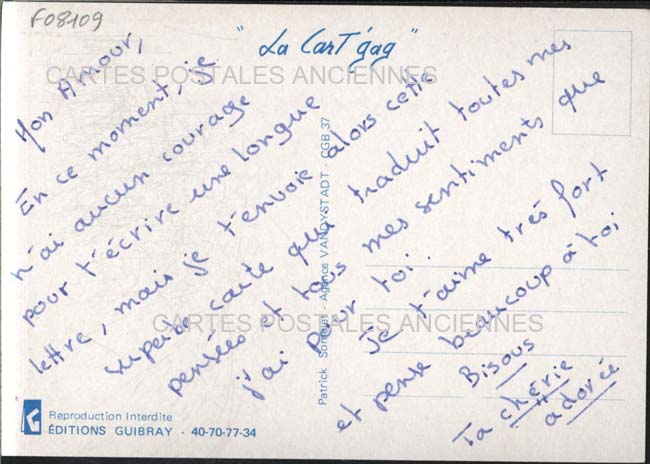 F08109
"La CarT'gag"
CARTES POSTALES ANCIENNES
Mon Amour,
En ce moment, je
n'ai aucun courage
pour t'écrire une longue
lettre, mais je t'envoie alors cette
superbe carte qui traduit toutes mes
pensées et tous mes sentiments que
j'ai pour toi.
Je t'aime très fort
et pense beaucoup à toi
Bisous
Ta chérie
adorée
Patrick - Agence VANDYSTADT - CGB 37
CARTES POSTALES ANCIENNES
Reproduction Interdite
ÉDITIONS GUIBRAY - 40-70-77-34